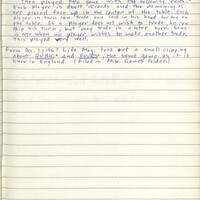 Then played this game with the following rules:
Each player is dealt cards and the remaining
are placed face up in the center of the table. Each
player in turn can trade any card in his hand for any on
the table. If a player does not wish to trade he can
skip his turn, but may trade in a later turn. Game
is over when no player wishes to make another trade.
This played very well.
From Dec. 1, 1967 Life Mag. took out a small clipping
about and the same game as it is
now in England. (Filed in Misc. Games folder)